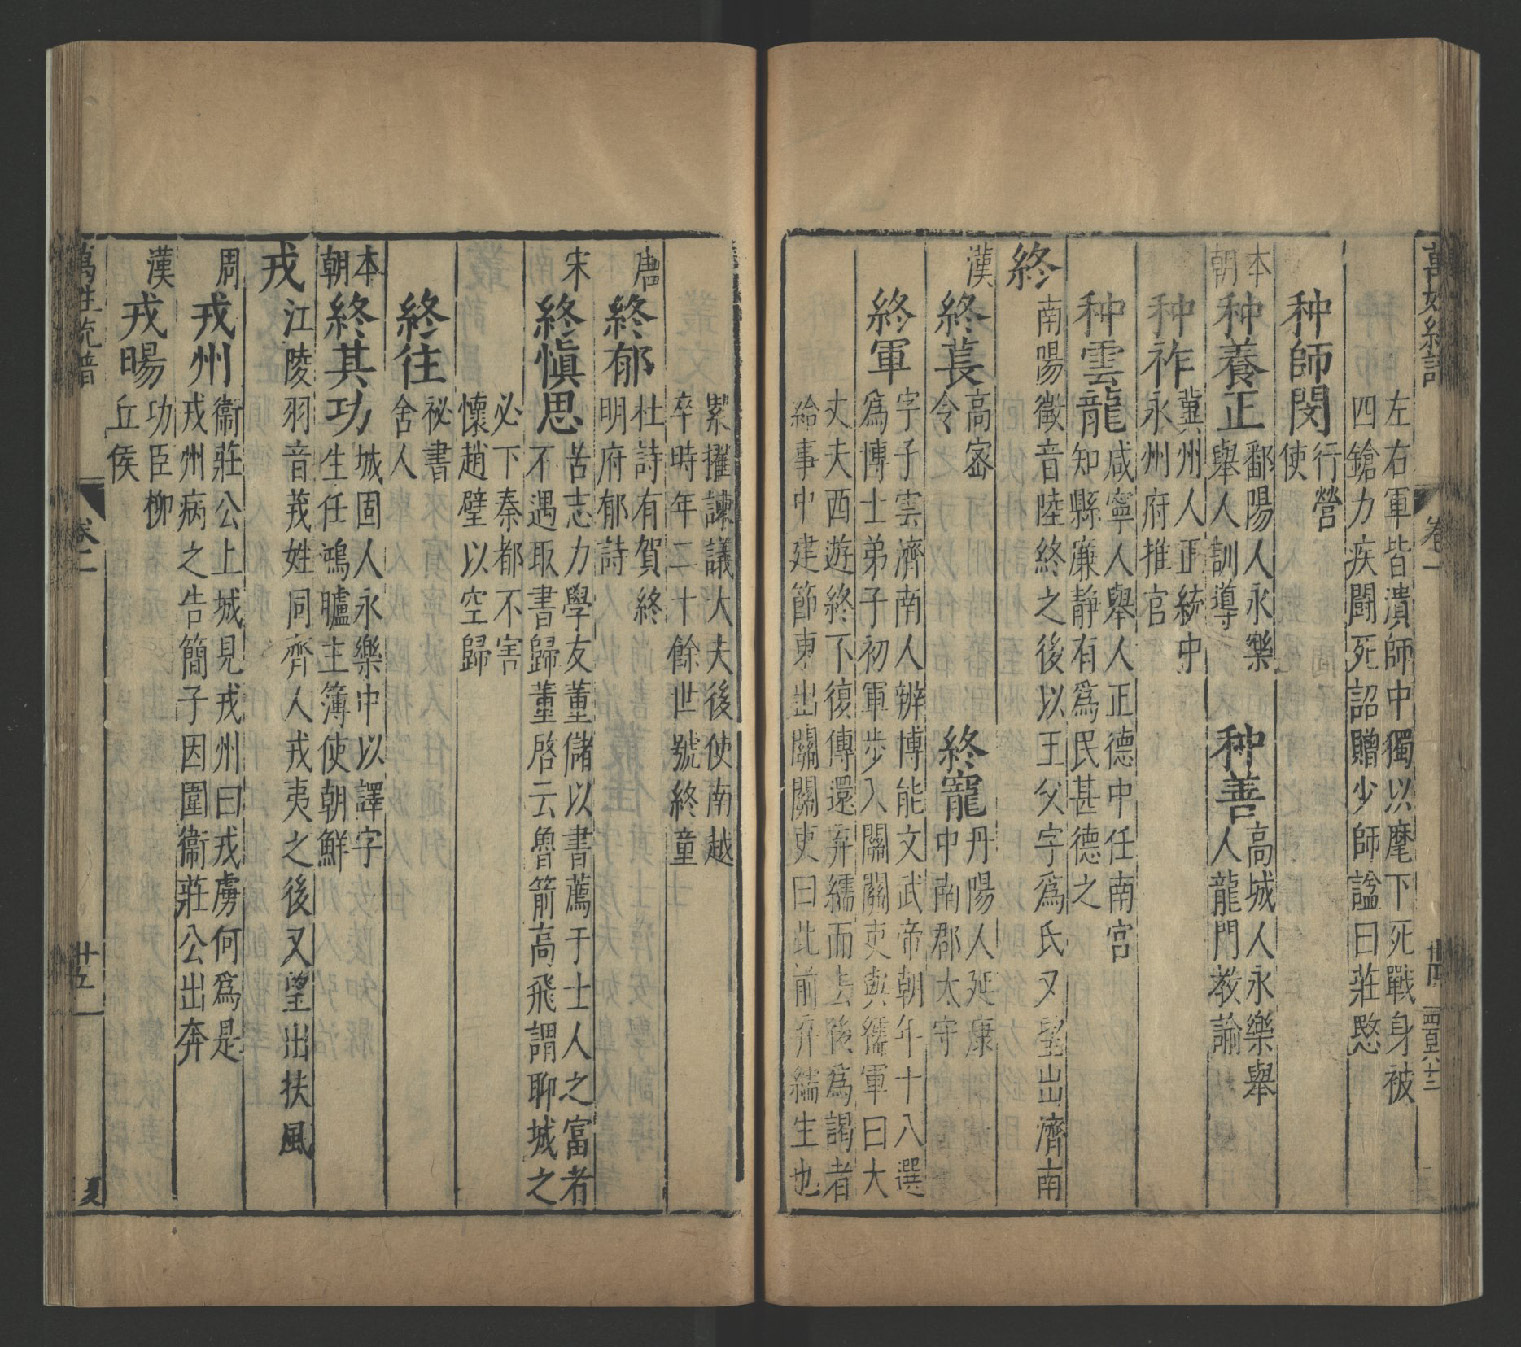 左右軍皆潰師中獨以麾下死戰身被
四鎗力疾鬪死詔贈少師諡曰莊愍
种師閔行營
使
本朝
种養正鄱陽人永樂
舉人訓導
种善高城人永樂舉
人龍門教諭
种祚冀州人正統中
永州府推官
种雲龍咸寧人舉人正德中任南宫
知縣廉静有爲民甚德之
終
南陽徵音陸終之後以王父字爲氏又望出濟南
漢
終萇高密
令
終寵丹陽人延康
中南郡太守
終軍字子雲濟南人辨博能文武帝朝年十八選
爲博士弟子初軍步入關關吏與繻軍曰大
丈夫西遊終不復傳還弃繻而去後爲謁者
給事中建節東出關關吏曰此前弃繻生也
累擢諫議大夫後使南越
卒時年二十餘世號終童
唐
終郁杜詩有賀終
明府郁詩
宋
終慎思苦志力學友董儲以書薦于士人之富者
不遇取書歸董啓云魯箭高飛謂聊城之
必下秦都不害
懷趙璧以空歸
終往祕書
舍人
本朝
終其功城固人永樂中以譯字
生任鴻臚主簿使朝鮮
戎
江陵羽音羙姓同齊人戎夷之後又望出扶風
周
戎州衞莊公上城見戎州曰戎虜何爲是
戎州病之告簡子因圍衞莊公出奔
漢
戎暘功臣柳
丘侯
萬姓統譜
卷一
廿五